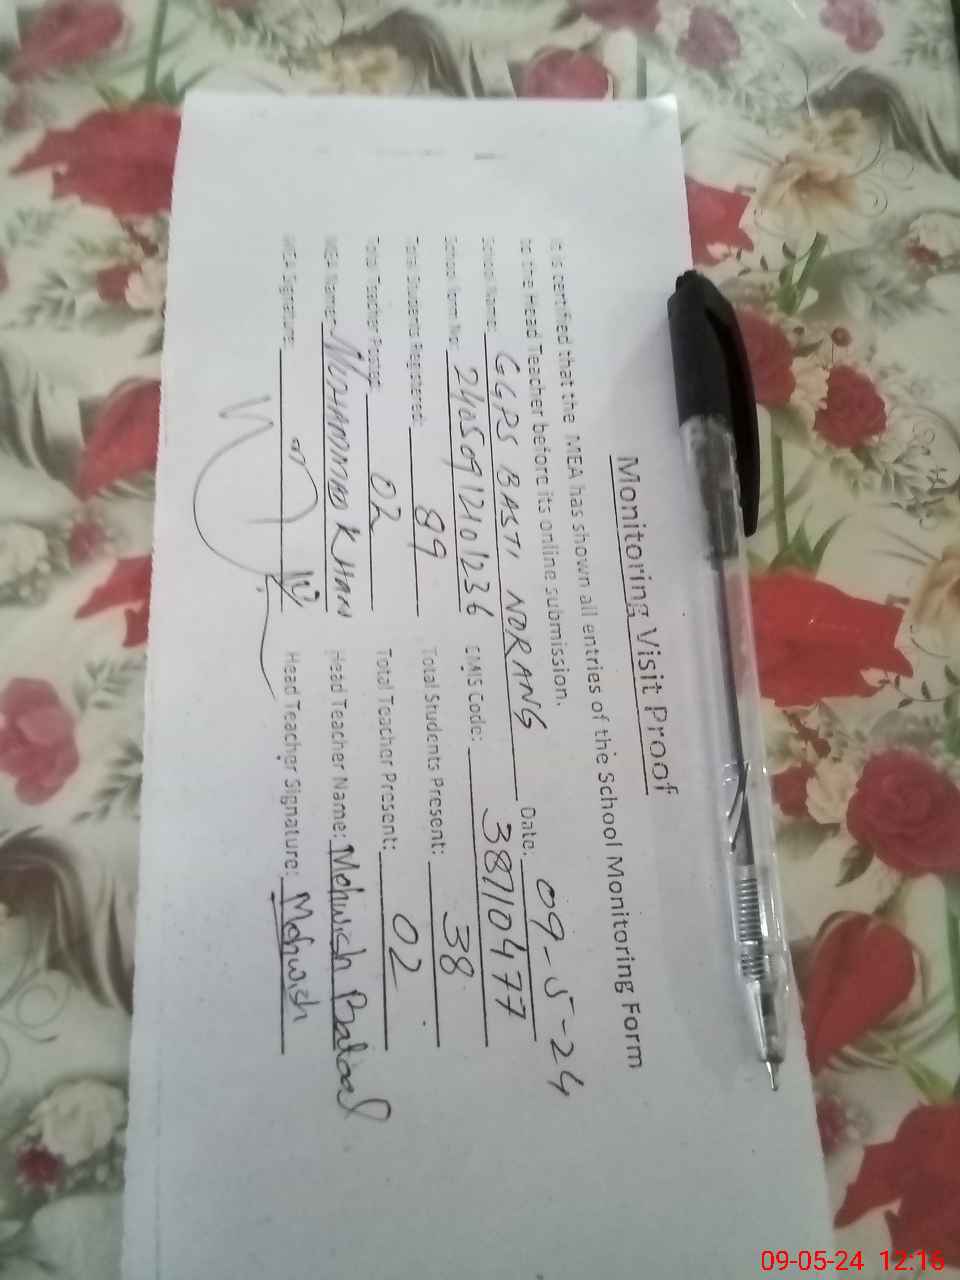 Monitoring Visit Proof
It is certified that the MEA has shown all entries of the School Monitoring Form
to the Head Teacher before its online submission.
School Name: GGPS BASTI NORANG Date: 09-5-24
School Form No: 24050912101236 EMIS Code: 38710477
Total Students Registered: 89 Total Students Present: 38
Total Teacher Posted: 02 Total Teacher Present: 02
MEA Name: MUHAMMAD KHAN Head Teacher Name: Mehwish
MEA Signature: Head Teacher Signature: Mehwish
09-05-24 12:16